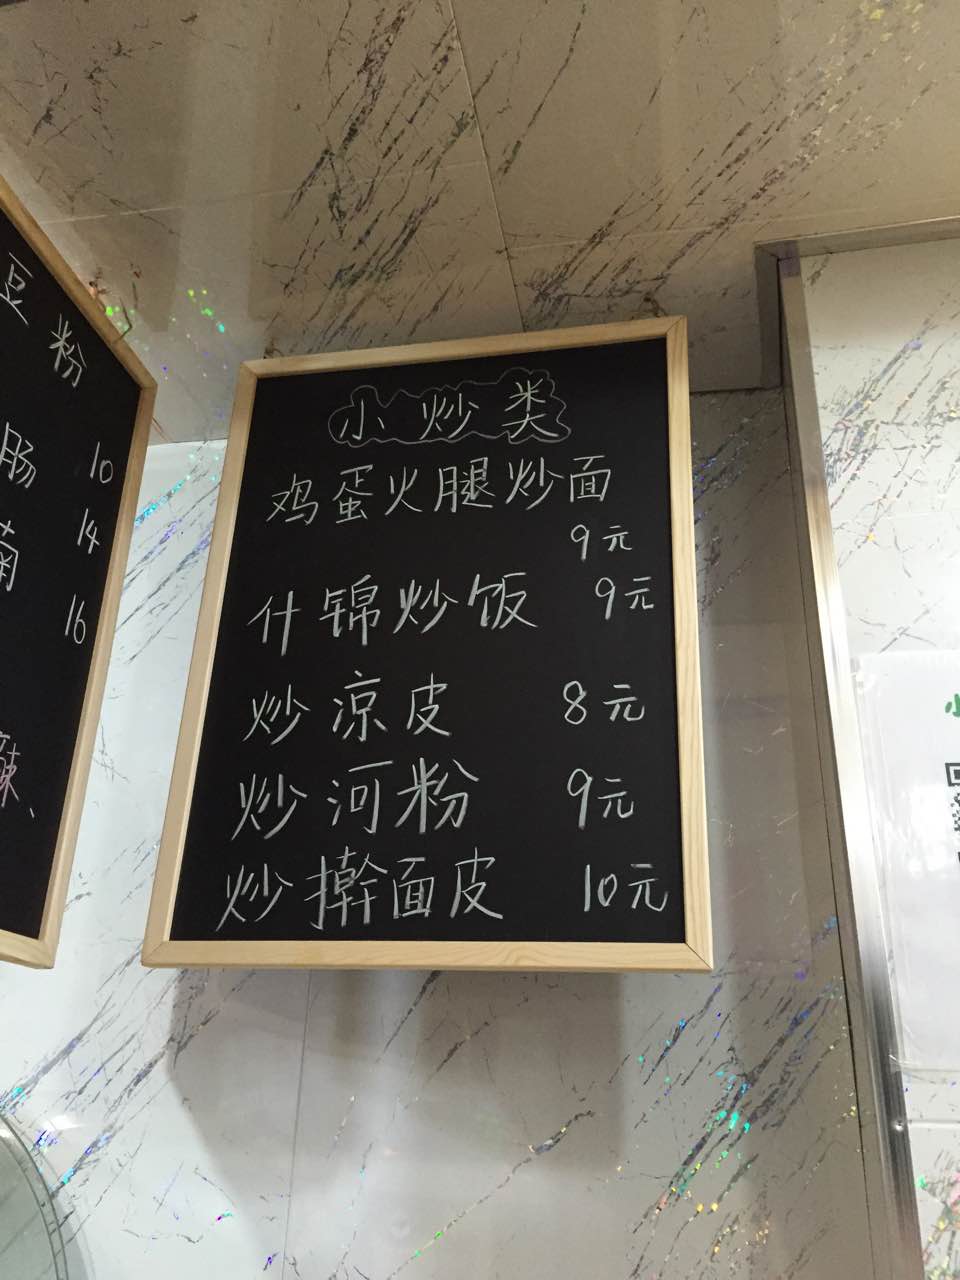 豆粉
肠 10
14
南 16
辣、
小炒类
鸡蛋火腿炒面
9元
什锦炒饭 9元
炒凉皮 8元
炒河粉 9元
炒擀面皮 10元